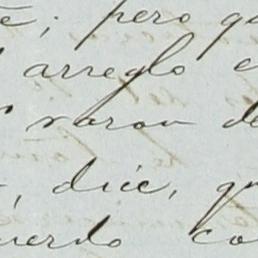 te; pero qu
arreglo e
varon de
, dice, qu
uerdo co